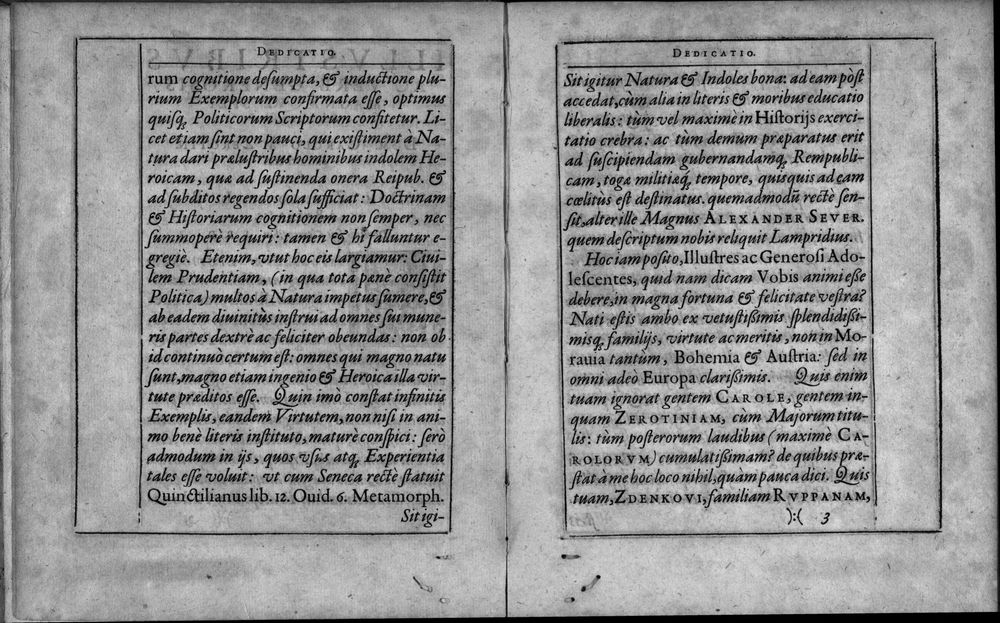 DEDICATIO.
rum cognitione desumpta, & inductione plu-
rium Exemplorum confirmata esse, optimus
quisq; Politicorum Scriptorum confitetur. Li-
cet etiam sint non pauci, qui existiment à Na-
tura dari prælustribus hominibus indolem He-
roicam, quæ ad sustinenda onera Reipub. &
ad subditos regendos sola sufficiat: Doctrinam
& Historiarum cognitionem non semper, nec
summoperè requiri: tamen & hi falluntur e-
gregiè. Etenim, vtut hoc eis largiamur: Ciui-
lem Prudentiam, (in qua tota pænè consistit
Politica) multos à Natura impetus sumere, &
ab eadem diuinitùs instrui ad omnes sui mune-
ris partes dextrè ac feliciter obeundas: non ob
id continuò certum est: omnes qui magno natu
sunt, magno etiam ingenio & Heroica illa vir-
tute præditos esse. Quin imò constat infinitis
Exemplis, eandem Virtutem, non nisi in ani-
mo benè literis instituto, maturè conspici: serò
admodum in ijs, quos vsus atq; Experientia
tales esse voluit: vt cum Seneca rectè statuit
Quinctilianus lib. 12. Ouid. 6. Metamorph.
Sit igi-
DEDICATIO.
Sit igitur Natura & Indoles bona: ad eam pòst
accedat, cùm alia in literis & moribus educatio
liberalis: tùm vel maximè in Historijs exerci-
tatio crebra: ac tùm demum præparatus erit
ad suscipiendam gubernandamq; Rempubli-
cam, togæ militiæq; tempore, quisquis ad eam
cœlitus est destinatus. quemadmodū rectè sen-
sit, alter ille Magnus ALEXANDER SEVER.
quem descriptum nobis reliquit Lampridius.
Hoc iam posito, Illustres ac Generosi Ado-
lescentes, quid nam dicam Vobis animi esse
debere, in magna fortuna & felicitate vestra?
Nati estis ambo ex vetustißimis splendidißi-
misq; familijs, virtute ac meritis, non in Mo-
rauia tantùm, Bohemia & Austria: sed in
omni adeò Europa clarißimis. Quis enim
tuam ignorat gentem CAROLE, gentem in-
quam ZEROTINIAM, cùm Majorum titu-
lis: tùm posterorum laudibus (maximè CA-
ROLORVM) cumulatißimam? de quibus præ-
stat à me hoc loco nihil, quàm pauca dici. Quis
tuam, ZDENKOVI, familiam RVPPANAM,
):( 3